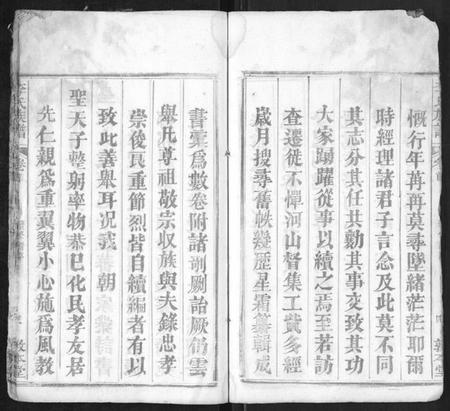 慨行年苒苒莫尋墜緒茫茫耶爾
時經理諸君子言念及此莫不同
其志分其任共勷其事交致其功
大家踴躍從事以續之焉至若訪
查遷徙不憚河山督集工貲多經
歲月搜尋舊帙幾歷星霜纂輯成
書彚為數卷附諸剞劂詒厥仍雲
舉凡尊祖敬宗收族與夫錄忠孝
崇俊良重節烈皆自續編者有以
致此義舉耳况我朝
聖天子整躬率物恭己化民孝友居
先仁親為重翼翼小心施為風教
李氏族譜
敦本堂